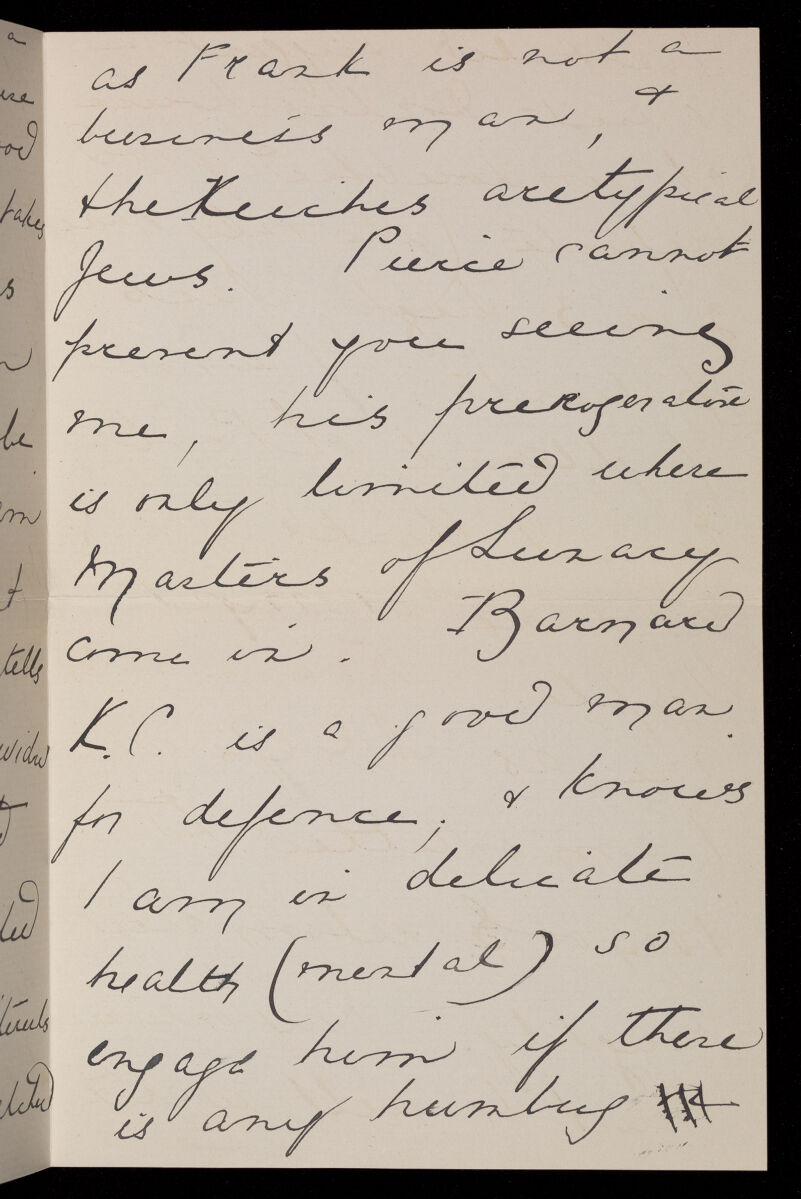 as Frank is not a
business man, &
the Keiches are typical
Jews. Pierie cannot
prevent you seeing
me, his prerogerative
is only limited where
Masters of Lunacy
come in. Barnard
K.C. is a good man
for defence, & knows
I am in delicate
health (mental) so
engage him if there
is any humbug
takes
s
be
tells